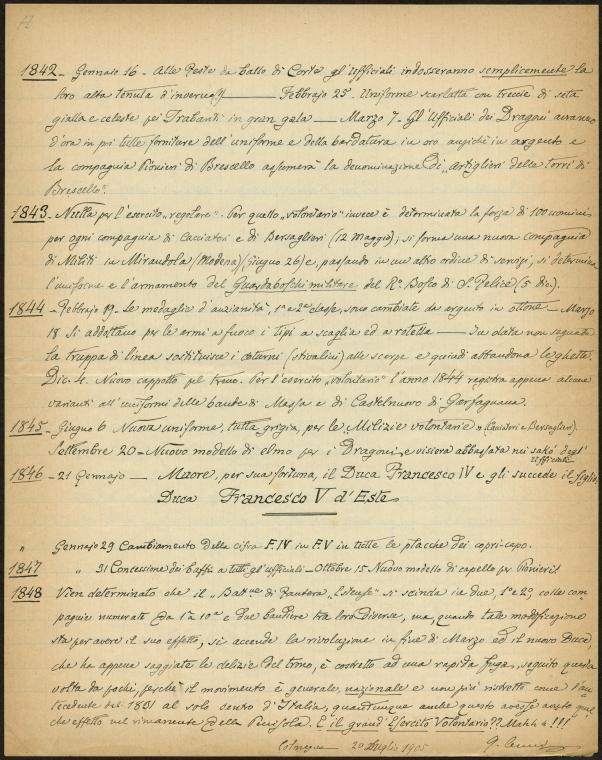 1842 - Gennaio 16 - Alle Feste da ballo di Corte gl'Ufficiali indosseranno semplicemente la
loro alta tenuta d'inverno(!) — Febbrajo 25. Uniforme scarlatta con treccie di seta
gialla e celeste pei Trabanti in gran gala — Marzo 7. Gl'Ufficiali dei Dragoni avranno
d'ora in poi tutte forniture dell'uniforme e della bardatura in oro anzichè in argento e
la compagnia Pionieri di Brescello assumerà la denominazione di "Artiglieri delle torri di
Brescello".
1843 - Nulla per l'esercito "regolare". Per quello "volontario" invece è determinata la forza di 100 uomini
per ogni compagnia di Cacciatori e di Bersaglieri (12 Maggio); si forma una nuova compagnia
di Militi in Mirandola (Modena) (Giugno 26) e, passando in un altro ordine di servizi, si determina
l'uniforme e l'armamento del Guardaboschi militare del R.º Bosco di S. Felice (5 Dic.).
1844 - Febbrajo 19 - le medaglie d'anzianità, 1ª e 2ª classe, sono cambiate da argento in ottone - Marzo
18 Si addottano per le armi a fuoco i tipi a scaglia ed a rotella — In data non segnata
la truppa di linea sostituisce i coturni (stivalini) alle scarpe e quindi abbandona le ghette.
Dic. 4. Nuovo cappotto pel treno. Per l'esercito "volontario" l'anno 1844 registra appena alcune
varianti all'uniformi delle bande di Massa e di Castelnuovo di Garfagnana.
1845 - Giugno 6 Nuova uniforme, tutta grigia, per le "Milizie volontarie" (Cacciatori e Bersaglieri).
Settembre 20 - Nuovo modello di elmo per i Dragoni e visiera abbassata nei sakò degl'
Ufficiali
1846 - 21 Gennajo — Muore, per sua fortuna, il Duca Francesco IV e gli succede il figlio,
Duca Francesco V d'Este
" Gennajo 29 Cambiamento della cifra F.IV in F.V in tutte le placche dei copri-capo.
1847 " 31 Concessione dei baffi a tutti gl'ufficiali - Ottobre 15 Nuovo modello di capello per Pionieri
1848 Vien determinato che il "Batt.ne di Fanteria "Estense" si scinda in due, 1º e 2º, colle com-
pagnie numerate da 1ª a 10ª e due bandiere tra loro diverse, ma, quando tale modificazione
sta per avere il suo effetto, si accende la rivoluzione in fine di Marzo ed il nuovo Duca,
che ha appena saggiate le delizie del trono, è costretto ad una rapida fuga, seguito questa
volta da pochi, perchè il movimento è generale, nazionale e non più ristretto come l'an-
tecedente del 1831 al solo centro d'Italia, quantunque anche questo avesse avuto qual-
che effetto nel rimanente della Penisola. E il grand'Esercito Volontario?? Mahh!!!!
20 Luglio 1905